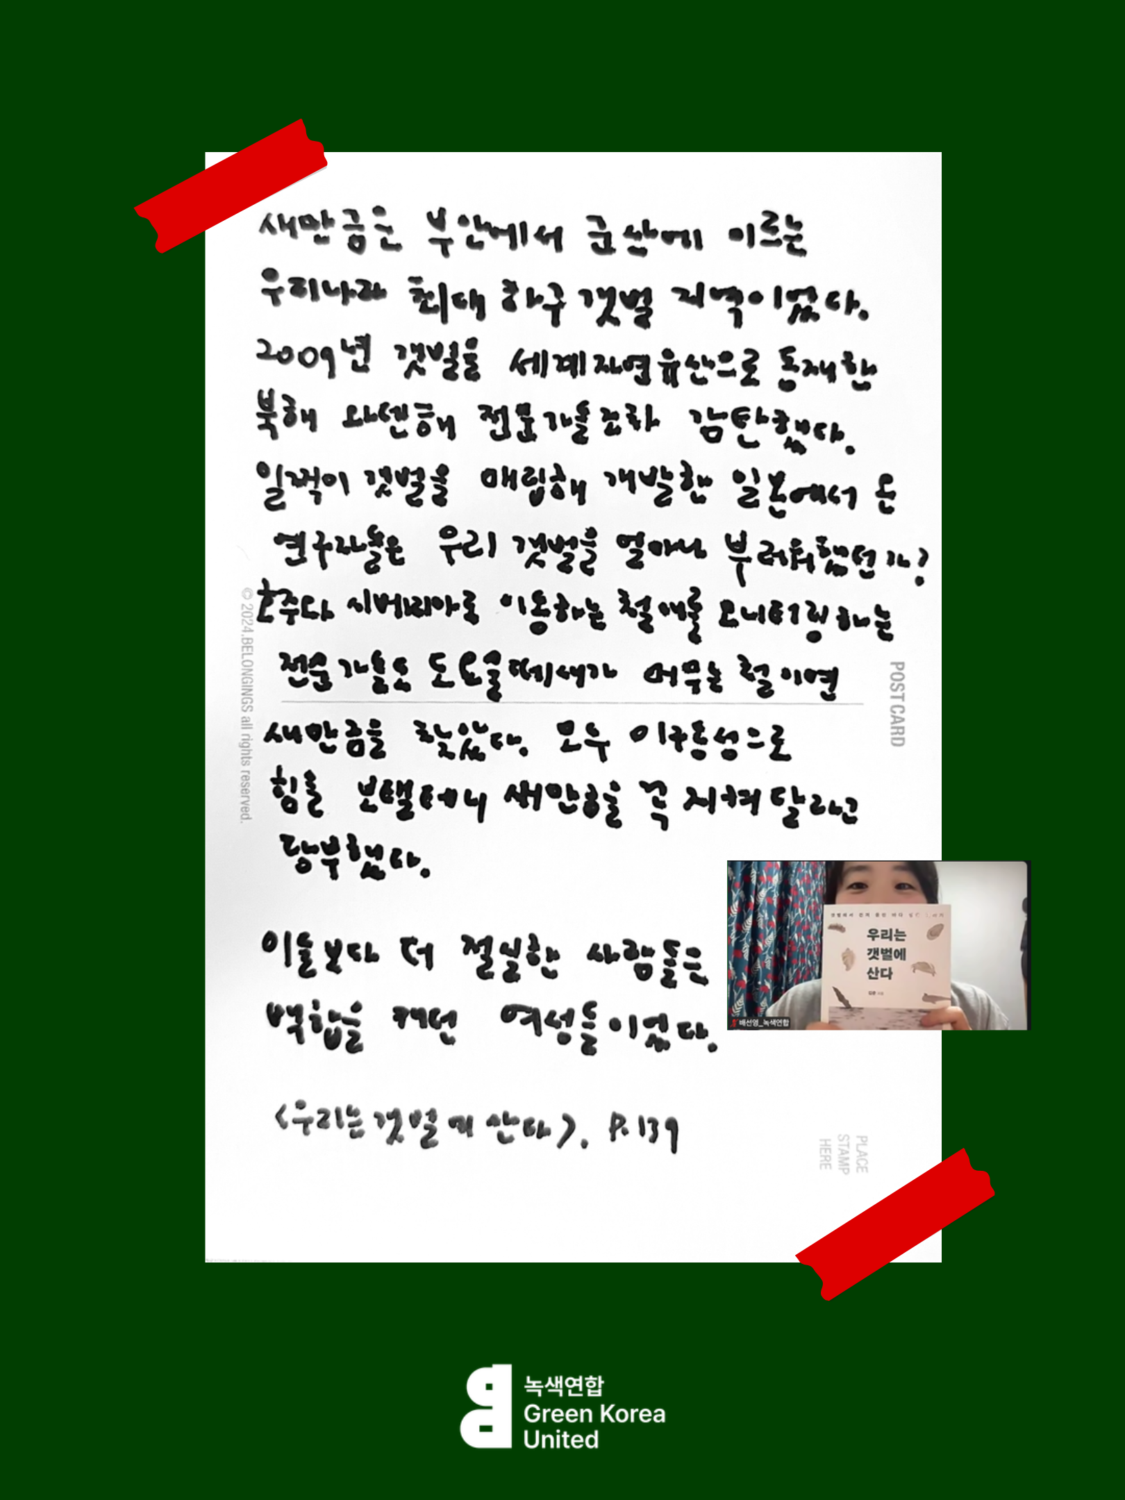 새만금은 부안에서 군산에 이르는
우리나라 최대 하구 갯벌 지역이었다.
2009년 갯벌을 세계자연유산으로 등재한
북해 와덴해 전문가들조차 감탄했다.
일찍이 갯벌을 매립해 개발한 일본에서 온
연구자들은 우리 갯벌을 얼마나 부러워했던가?
호주와 시베리아로 이동하는 철새를 모니터링하는
전문가들도 도요물떼새가 머무는 철이면
새만금을 찾았다. 모두 이구동성으로
힘을 보탤테니 새만금을 꼭 지켜 달라고
당부했다.
이들보다 더 절실한 사람들은
백합을 캐던 여성들이었다.
<우리는 갯벌에 산다>. P.139
© 2024.BELONGINGS all rights reserved.
POST CARD
PLACE
STAMP
HERE
우리는
갯벌에
산다
배선영_녹색연합
녹색연합
Green Korea
United